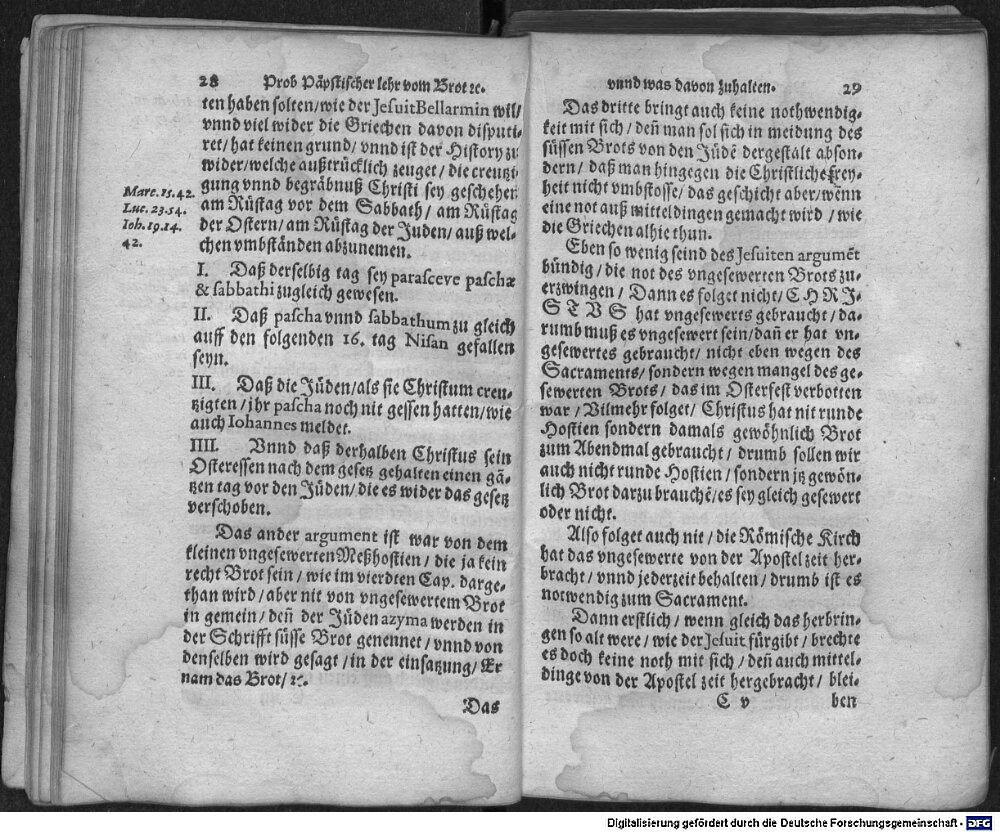 28 Prob Päpstischer lehr vom Brot ꝛc.
ten haben solten/wie der Jesuit Bellarmin wil/
vnnd viel wider die Griechen davon disputi-
ret/hat keinen grund/ vnnd ist der History zu
wider/welche außtrücklich zeuget/die creutzi-
gung vnnd begräbnuß Christi sey geschehen
am Rüstag vor dem Sabbath/ am Rüstag
der Ostern/am Rüstag der Juden/auß wel-
chen vmbständen abzunemen.
Marc. 15. 42.
Luc. 23. 54.
Ioh. 19. 14.
42.
I. Daß derselbig tag sey parasceve paschæ
& sabbathi zugleich gewesen.
II. Daß pascha vnnd sabbathum zu gleich
auff den folgenden 16. tag Nisan gefallen
seyn.
III. Daß die Jüden/als sie Christum creu-
tzigten/jhr pascha noch nit gessen hatten/wie
auch Iohannes meldet.
IIII. Vnnd daß derhalben Christus sein
Osteressen nach dem gesetz gehalten einen gā-
tzen tag vor den Jüden/die es wider das gesetz
verschoben.
Das ander argument ist war von dem
kleinen vngesewerten Meßhostien/ die ja kein
recht Brot sein/ wie im vierdten Cap. darge-
than wird/aber nit von vngesewertem Brot
in gemein/deñ der Jüden azyma werden in
der Schrifft süsse Brot genennet/vnnd von
denselben wird gesagt/in der einsatzung/Er
nam das Brot/ꝛc.
Das
vnnd was davon zuhalten. 29
Das dritte bringt auch keine nothwendig-
keit mit sich/ deñ man sol sich in meidung des
süssen Brots von den Jüdē dergestalt abson-
dern/ daß man hingegen die Christliche Frey-
heit nicht vmbstosse/das geschicht aber/wenn
eine not auß mitteldingen gemacht wird/wie
die Griechen alhie thun.
Eben so wenig seind des Jesuiten argumēt
bündig/die not des vngesewerten Brots zu-
erzwingen/Dann es folget nicht/CHRI-
STVS hat vngesewerts gebraucht/da-
rumb muß es vngesewert sein/dañ er hat vn-
gesewertes gebraucht/ nicht eben wegen des
Sacraments/sondern wegen mangel des ge-
sewerten Brots/das im Osterfest verbotten
war/Vilmehr folget/Christus hat nit runde
Hostien sondern damals gewöhnlich Brot
zum Abendmal gebraucht/ drumb sollen wir
auch nicht runde Hostien/sondern jtz gewön-
lich Brot darzu brauchē/es sey gleich gesewert
oder nicht.
Also folget auch nit/die Römische Kirch
hat das vngesewerte von der Apostel zeit her-
bracht/ vnnd jederzeit behalten/ drumb ist es
notwendig zum Sacrament.
Dann erstlich/ wenn gleich das herbrin-
gen so alt were/wie der Jesuit fürgibt/brechte
es doch keine noth mit sich/deñ auch mittel-
dinge von der Apostel zeit hergebracht/ blei-
C v ben
Digitalisierung gefördert durch die Deutsche Forschungsgemeinschaft - DFG